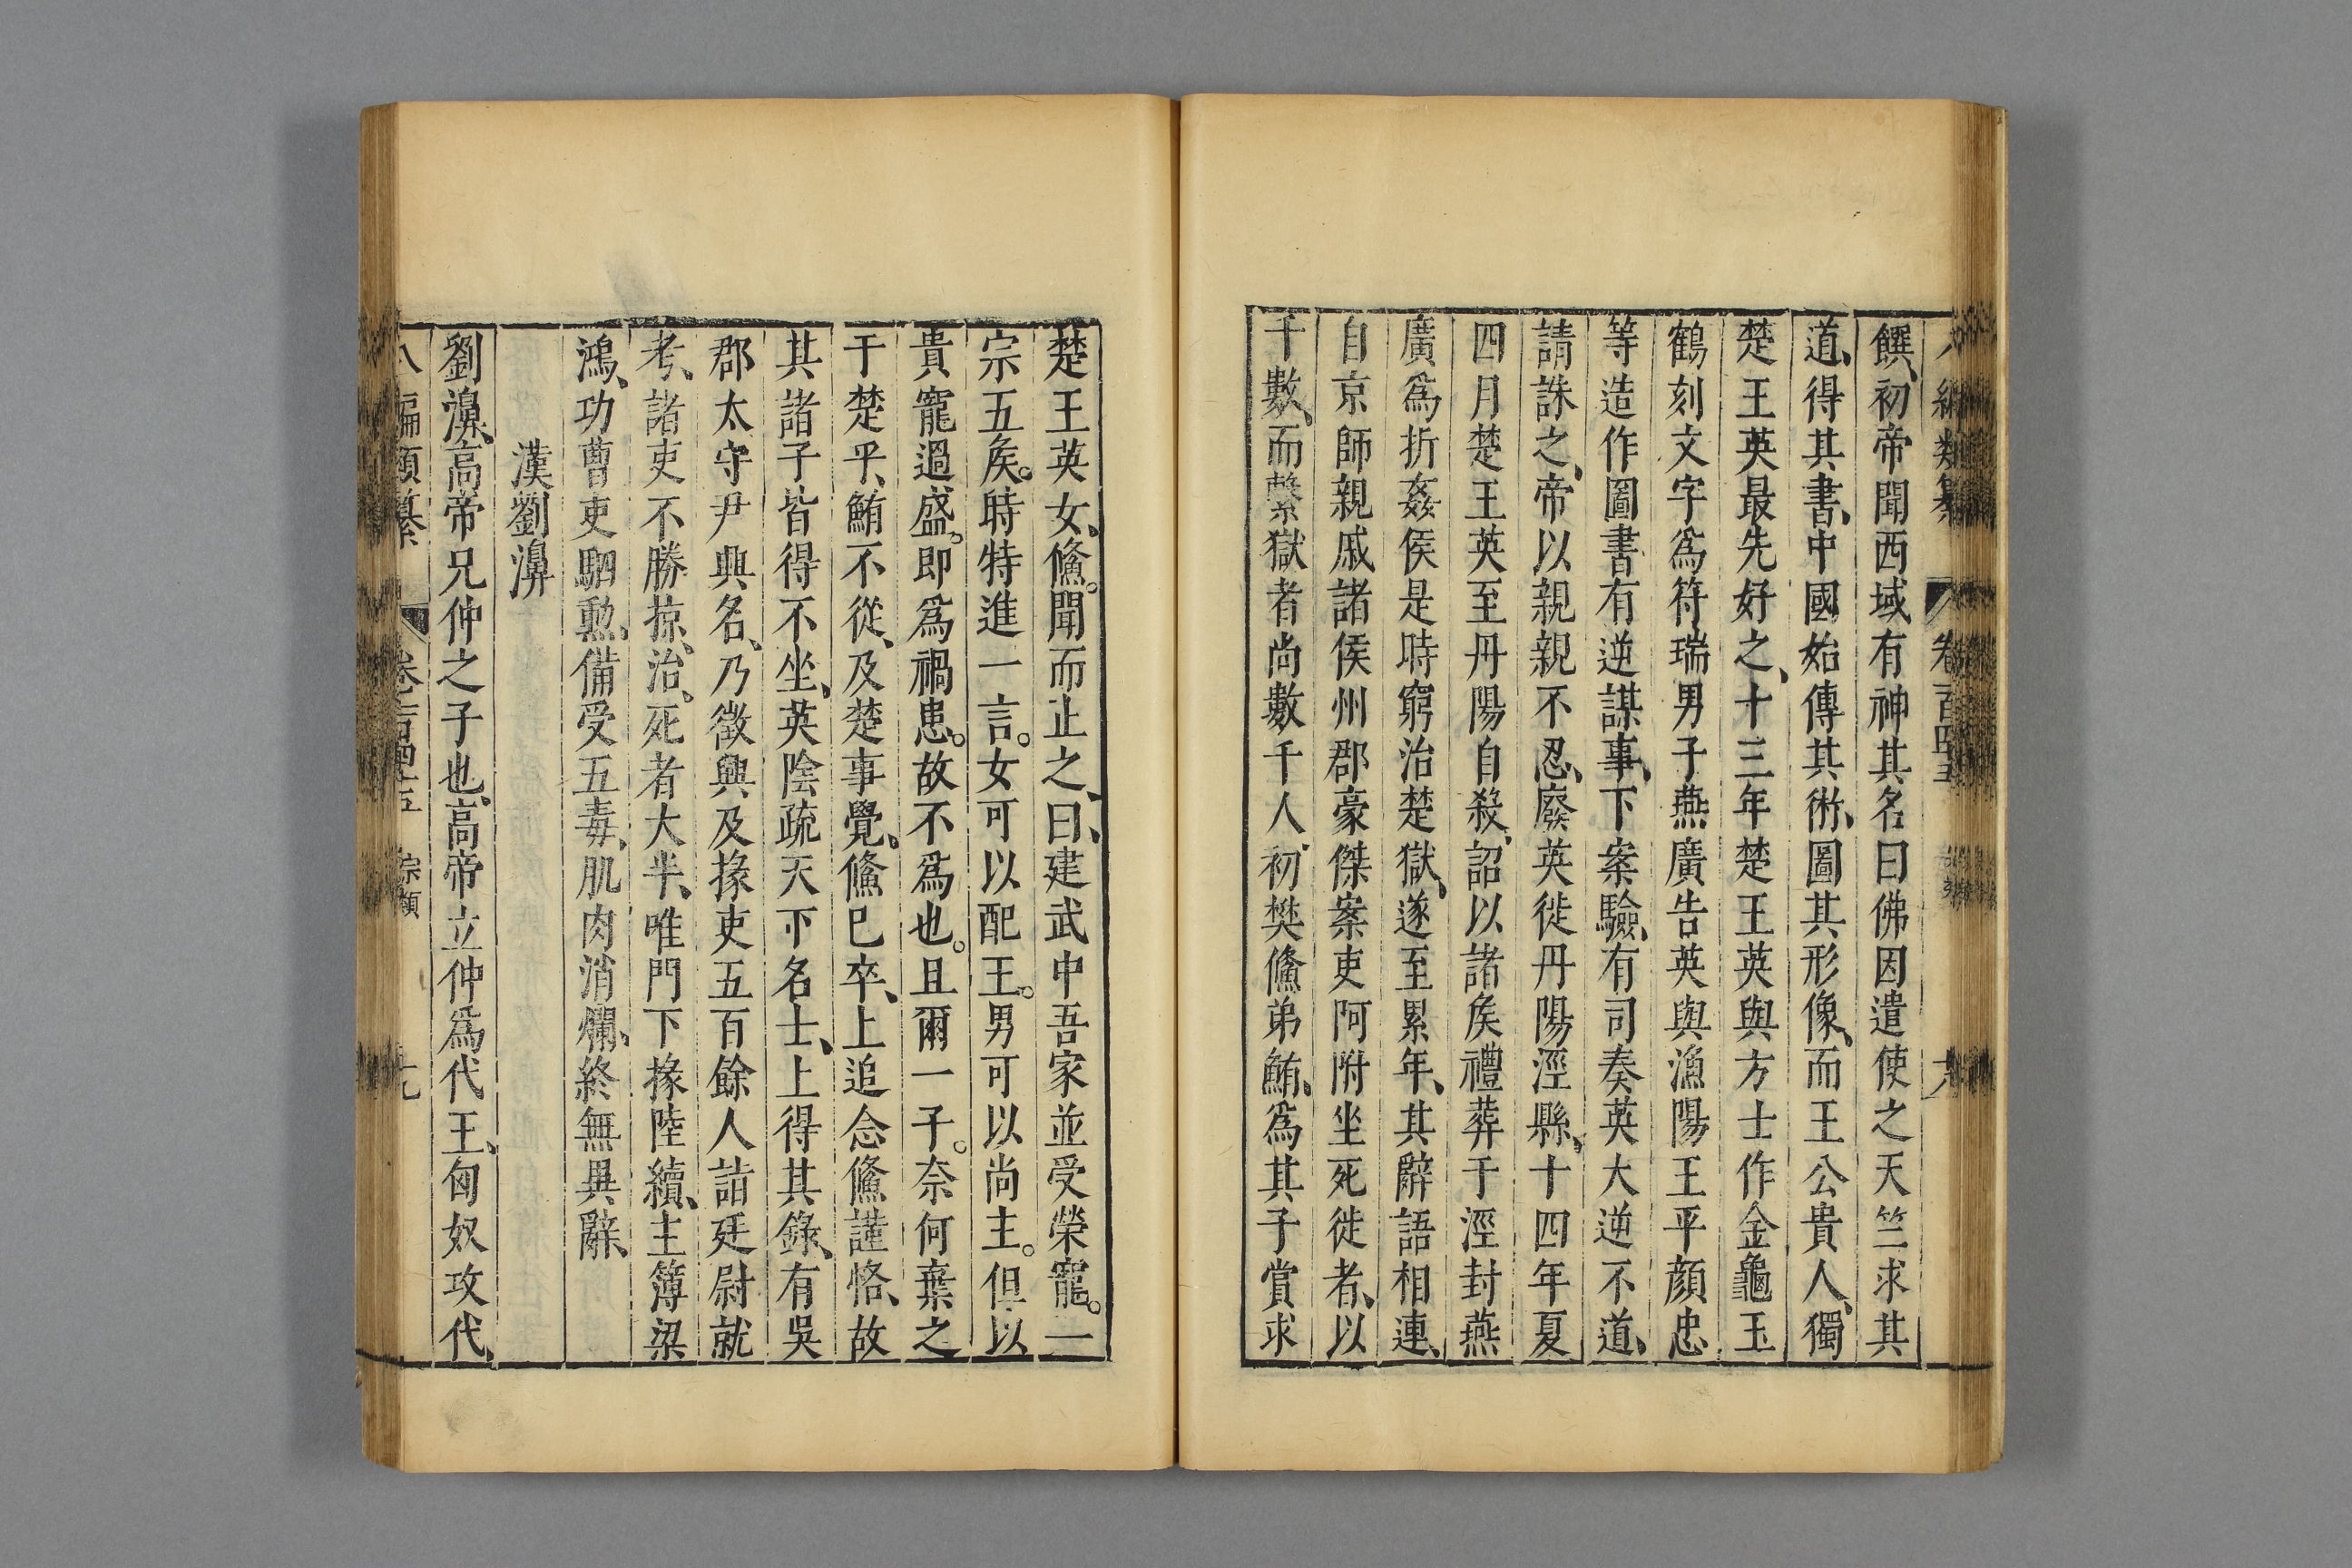 饌、初帝聞西域有神其名曰佛因遣使之天竺求其
道、得其書、中國始傳其術、圖其形像、而王公貴人、獨
楚王英最先好之、十三年楚王英與方士作金龜玉
鶴刻文字爲符瑞男子燕廣告英與漁陽王平顔忠
等造作圖書有逆謀事、下案驗、有司奏英大逆不道、
請誅之、帝以親親不忍、廢英徙丹陽涇縣、十四年夏
四月楚王英至丹陽自殺、詔以諸矦禮葬于涇封燕
廣爲折姦侯是時窮治楚獄、遂至累年、其辭語相連、
自京師親戚諸侯州郡豪傑案吏阿附坐死徙者、以
千數、而繫獄者尚數千人、初樊鯈弟鮪、爲其子賞求
楚王英女、鯈。聞而止之、曰、建武中吾家並受榮寵。一
宗五矦。時特進一言。女可以配王。男可以尚主。但以
貴寵過盛。即爲禍患。故不爲也。且爾一子。奈何棄之
于楚乎、鮪不從、及楚事覺、鯈巳卒、上追念鯈謹恪、故
其諸子皆得不坐、英陰疏天下名士、上得其錄、有吳
郡太守尹興名、乃徵興及掾吏五百餘人詣廷尉就
考、諸吏不勝掠、治、死者大半、唯門下掾陸續、主簿梁
鴻、功曹吏駟勲、備受五毒、肌肉消爛、終無異辭、
漢劉濞
劉濞、高帝兄仲之子也、高帝立仲爲代王、匈奴攻代、
八編類纂 卷之一百四十五 宗類 十九